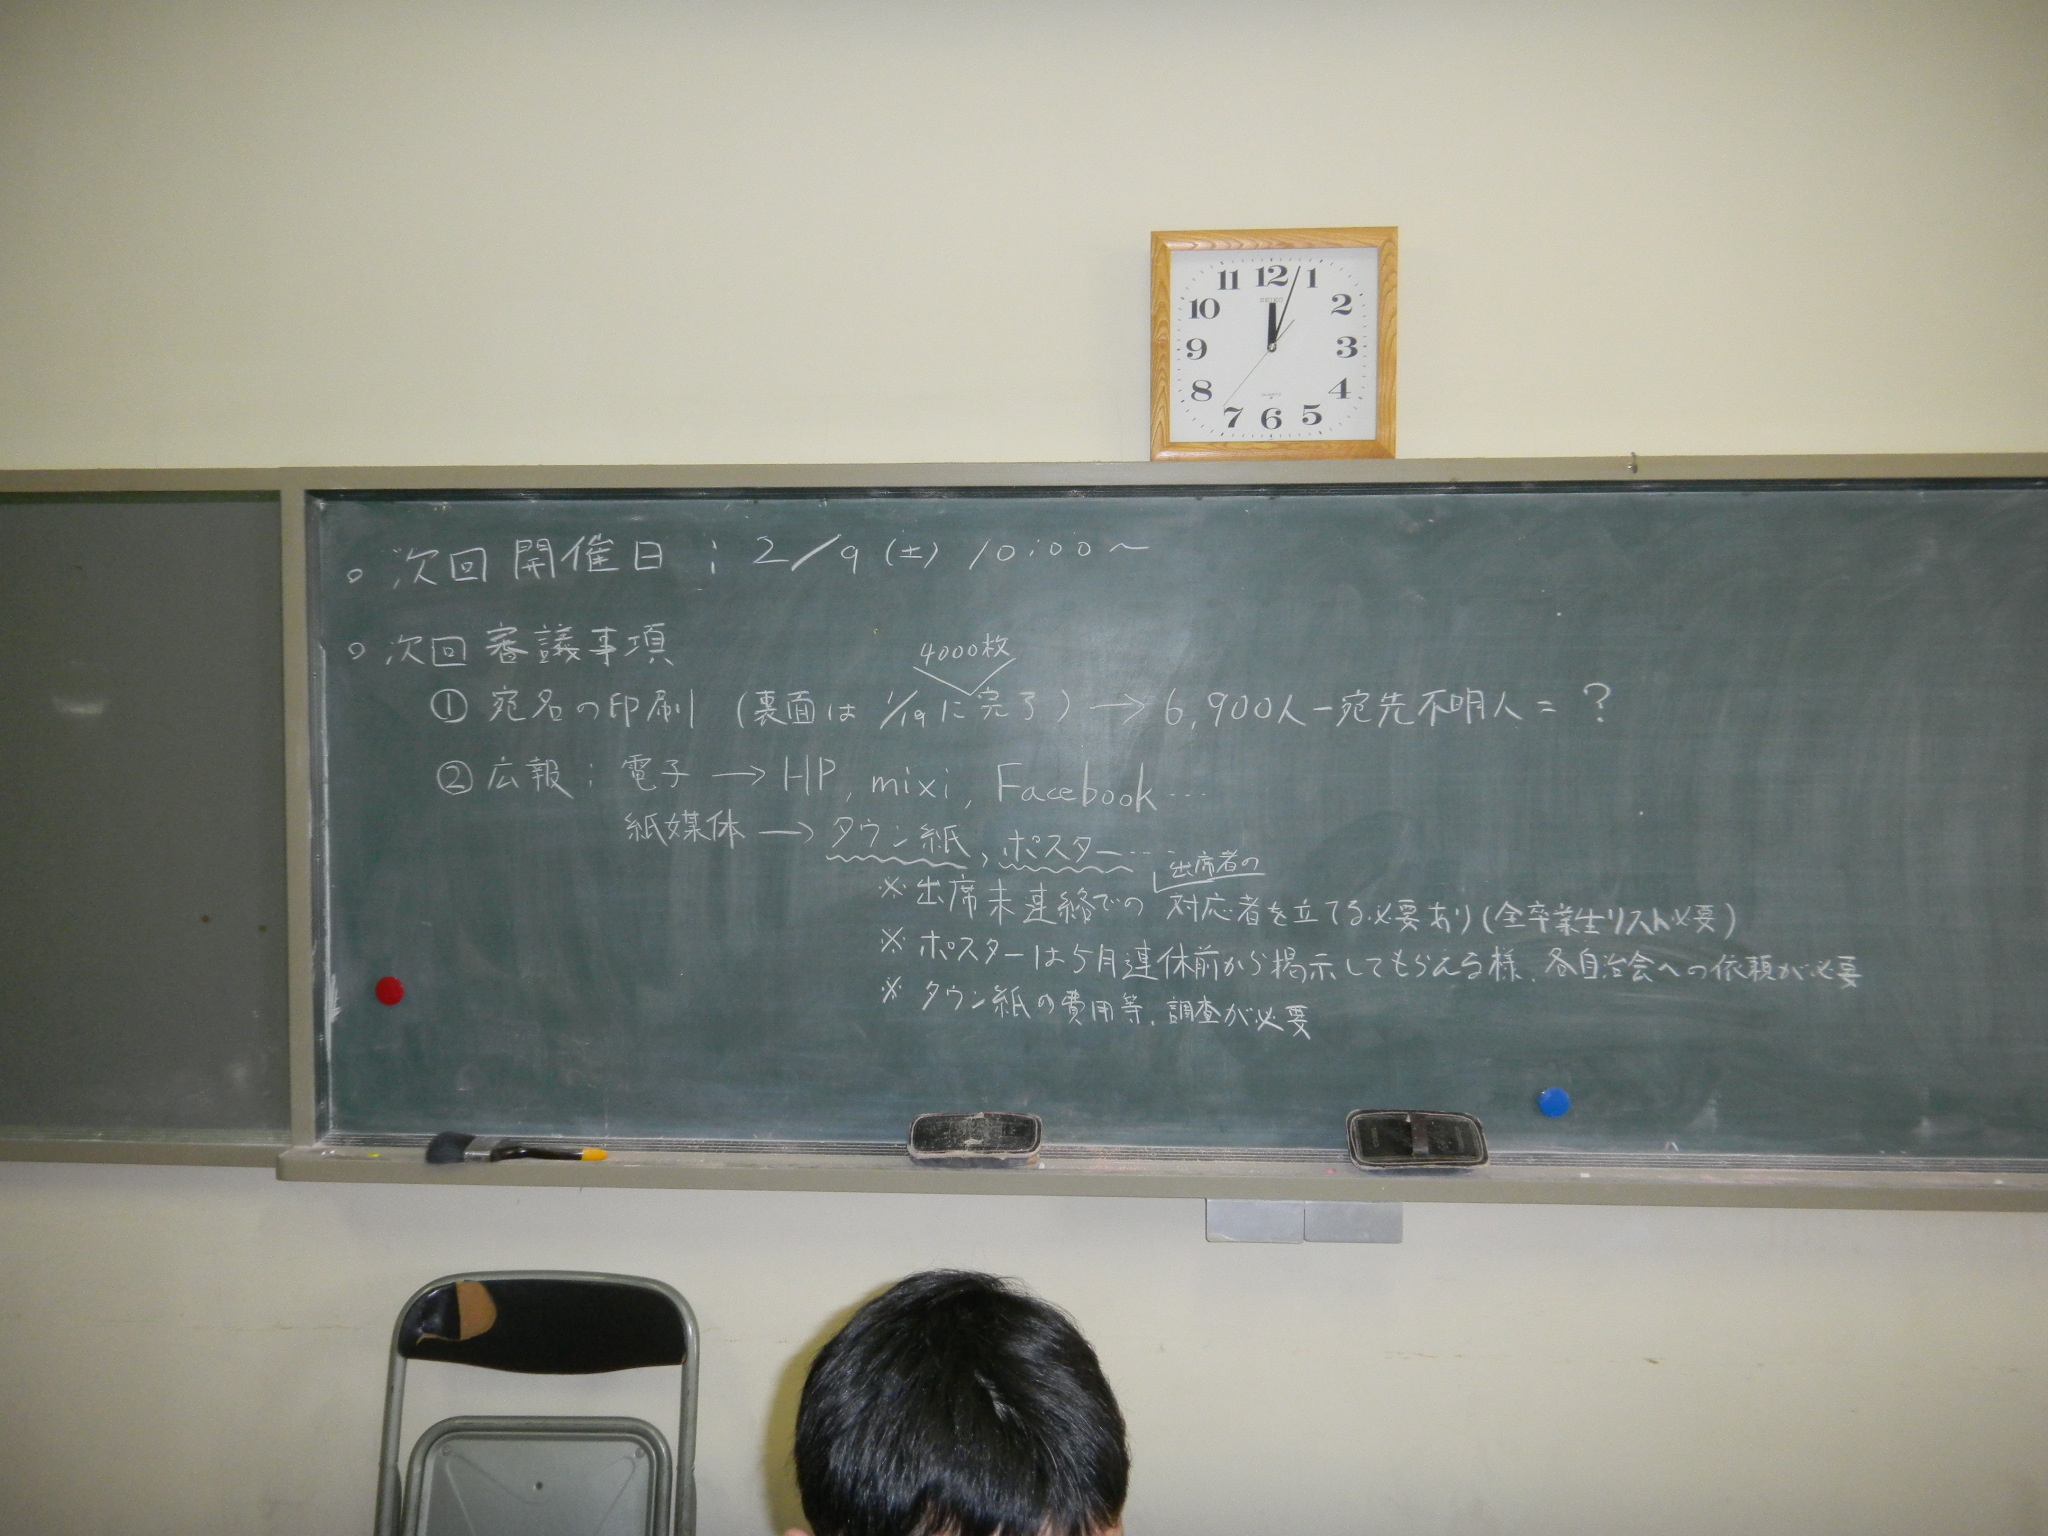 11 12 1
10 2
9 3
8 4
7 6 5
SEIKO
QUARTZ
○ 次回開催日：2/9（土）10:00〜
○ 次回審議事項
4000枚
① 宛名の印刷（裏面は1/19に完了）→ 6,900人－宛先不明人＝？
② 広報：電子 → HP, mixi, Facebook…
紙媒体 → タウン紙、ポスター…
出席者の
※ 出席未連絡での対応者を立てる必要あり（全卒業生リスト必要）
※ ポスターは5月連休前から掲示してもらえる様、各自治会への依頼が必要
※ タウン紙の費用等、調査が必要